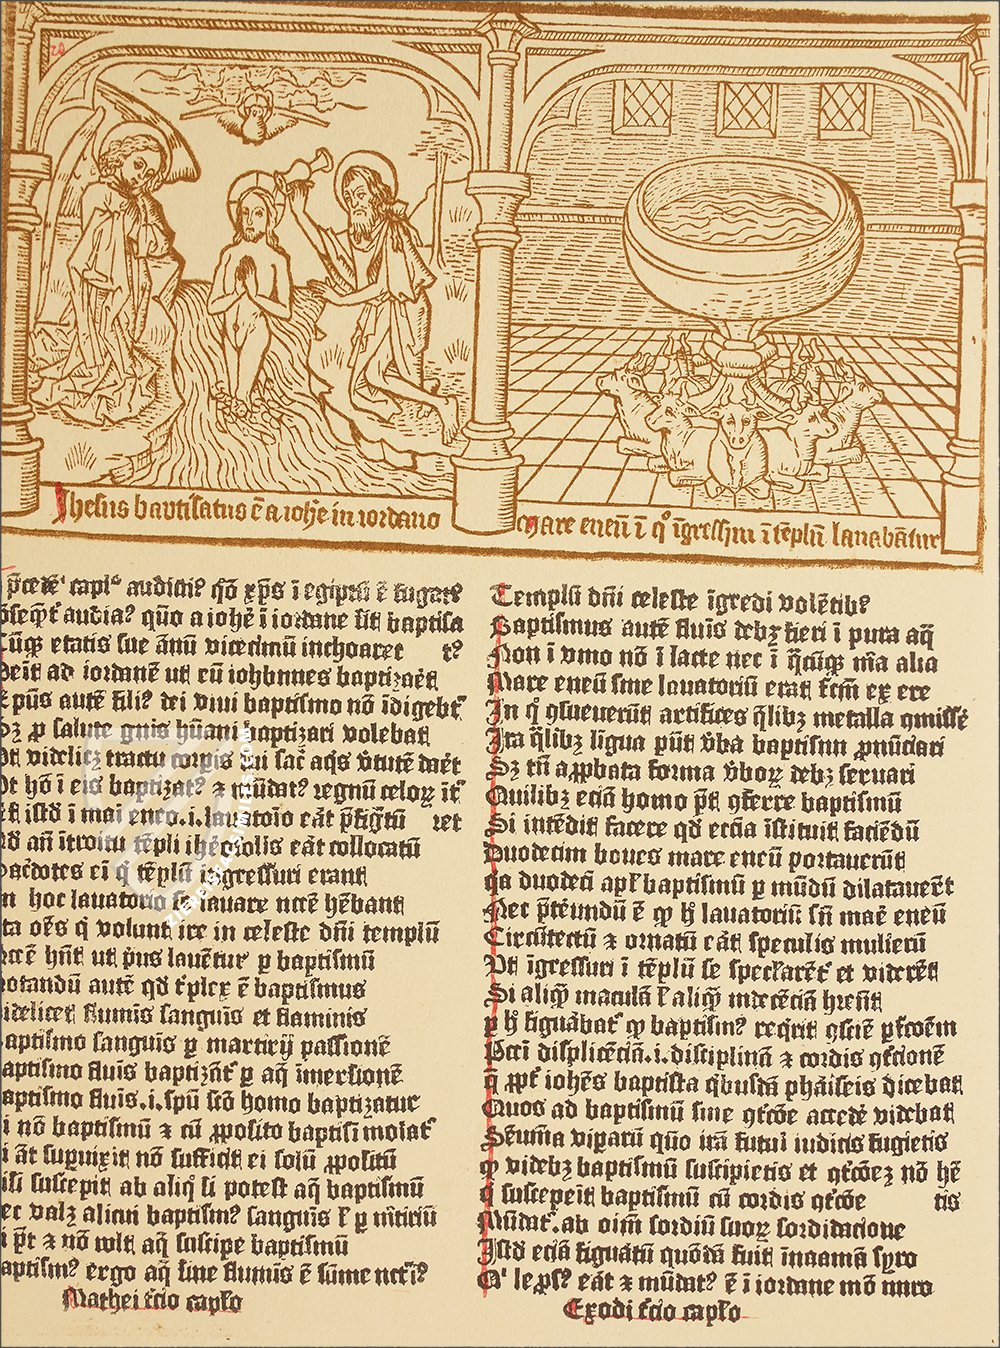 28
Jhesus baptisatus ē a iohe in iordano
Mare eneū ī qͦ īgressuri ī tēplū lauabātur
p̄cedēti caplo audiuimꝰ quō xp̄s ī egiptū ē fugatꝰ
audiamꝰ quō a iohē ī iordane sit baptisa
etatis sue ānū vicecimū inchoaret tꝰ
ad iordanē ut cū iohānnes baptizaēt
xp̄us autē filiꝰ dei vivi baptismo nō īdigebt
Sꝫ ꝑ salute gnis hūani baptizari volebat
videlicꝫ tractu corpis sui aq̄s v̄tutē daēt
Ut hō ī eis baptizatꝰ ⁊ mūdatꝰ regnū celoꝝ īt
istd ī mari eneo .i. lauatoīo eāt p̄figtū ret
an̄ ītroitu tēpli ihe collocatū
ei q̄ tēplū īgressuri erant
In hoc lauatorio se lauare nccē hēbant
Ita oēs q̄ volunt ire in celeste dn̄i templū
hn̄t ut p̄us lauētur ꝑ baptismū
Notandū autē qd tͥplex ē baptismus
Videlicet flumis sanguīs et flaminis
Baptismo sanguīs ꝑ martirij passionē
Baptismo fluīs baptizāt ꝑ aq̄ īmersionē
Baptismo fluīs .i. spū scō homo baptizatur
nō baptismū ⁊ cū ꝓposito baptisi moriat
āt supuixit nō sufficit ei solū ꝓpositū
Nisi suscepit ab aliq̄ si potest aq̄ baptismū
Nec valꝫ alicui baptismꝰ sanguīs
⁊ nō vult aq̄ suscipe baptismū
Baptismꝰ ergo aq̄ siue flumīs ē sūme
Mathei tͥcio caplo
Templū dn̄i celeste īgredi volētibꝰ
Baptismus autē fluīs debꝫ fieri ī pura aq̄
Non ī vino nō ī lacte nec ī q̄cūqꝫ m̄a alia
Mare eneū siue lauatoriū erat fc̄m ex ere
In qͦ ꝯsueuerūt artifices q̄libꝫ metalla ꝯmissē
Ita q̄libꝫ līgua pn̄t v̄ba baptismi ꝓnūciari
Sꝫ tn̄ aꝓbata forma v̄boꝝ debꝫ seruari
Quilibꝫ eciā homo pt̄ ꝯferre baptismū
Si intēdit facere qd ecc̄ia īstituit faciēdū
Duodecim boues mare eneū portauerūt
q̄a duodecī apl̄i baptismū ꝑ mūdū dilatauerēt
Nec p̄tēundū ē qꝫ hͦ lauatoriū sīi maē eneū
Circūtectū ⁊ ornatū eāt speculis mulierū
Ut īgressuri ī tēplū se speclarēt et viderēt
Si aliq̄ maculā l aliq̄ indecēciā hr̄ent
ꝑ hͦ figuābat qꝫ baptismꝰ reqͥrit ꝯsciē
Pctī displicēciā .i. disciplinā ⁊ cordis ꝯtͥcionē
q̄ ꝓpt iohēs baptista qͥbusdā phāiseis dicebat
Quos ad baptismū sine ꝯtͥcōe accedē videbat
viparū quō irā futuī iudicis fugietis
qꝫ videbꝫ baptismū suscipietis et ꝯtͥcōeꝫ nō hē
q̄ suscepeīt baptismū cū cordis ꝯtͥcōe tis
Mūdat ab oīm sordiū suoꝝ sorditacione
Istd eciā figuātū quōdā fuit ī naamā syro
Qͥ leꝓsꝰ eāt ⁊ mūdatꝰ ē ī iordane mō miro
Exodi tͥcio caplo